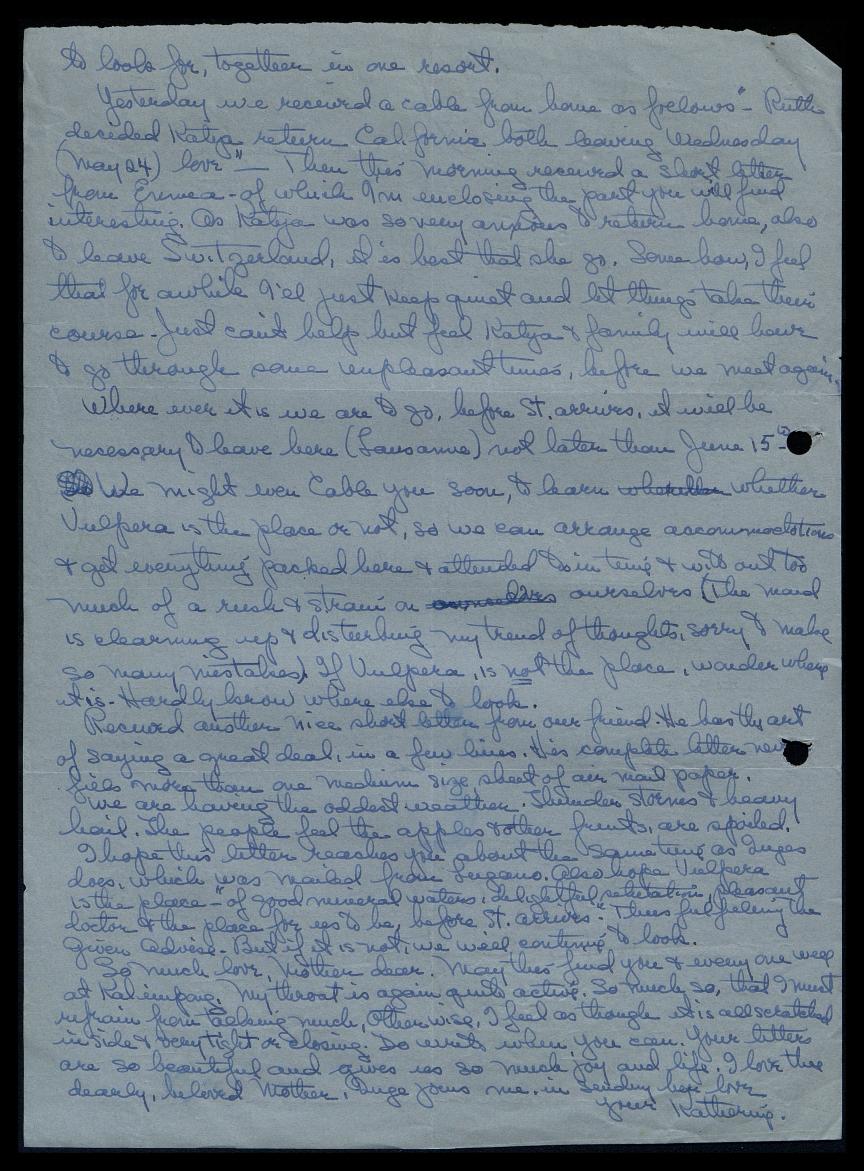 to look for, together in one resort.
Yesterday we received a cable from home as follows "- Ruth
decided Katja return California both leaving Wednesday
(May 24) love" - Then this morning received a short letter
from Emmea - of which I'm enclosing the part you will find
interesting. As Katja was so very anxious to return home, also
to leave Switzerland, it is best that she go. Some how, I feel
that for awhile I'll just keep quiet and let things take their
course - Just can't help but feel Katja & family will have
to go through some unpleasant times, before we meet again.
Where ever it is we are to go, before St. arrives, it will be
necessary to leave here (Lausanne) not later than June 15th
We might even Cable you soon, to learn whether whether
Vulpera is the place or not, so we can arrange accommodations
& get everything packed here & attended to in time & with out too
much of a rush & strain on ourselves ourselves (The maid
is clearning up & disturbing my trend of thoughts, sorry to make
so many mistakes). If Vulpera, is not the place, wonder where
it is - Hardly know where else to look.
Received another nice short letter from our friend. He has the art
of saying a great deal, in a few lines. His complete letter never
fills more than one medium size, sheet of air mail paper.
We are having the oddest weather. Thunder storms & heavy
hail. The people feel the apples & other fruits, are spoiled.
I hope this letter reaches you about the same time as Inges
does, which was mailed from Lugano. Also hope Vulpera
is the place - "of good mineral waters, delightful, pleasant
doctor & the place for us to be, before St. arrives." Thus fulfilling the
Given advise - But if it is not, we will continue to look.
So much love, Mother dear. May this find you & every one well
at Kalimpong. My throat is again quite active. So much so, that I must
refrain from talking much, Otherwise, I feel as though it is all scratched
inside & very tight or closing. Do write when you can. Your letters
are so beautiful and gives us so much joy and life. I love thee
dearly, beloved Mother. Inge joins me in sending her love
your Katherine.